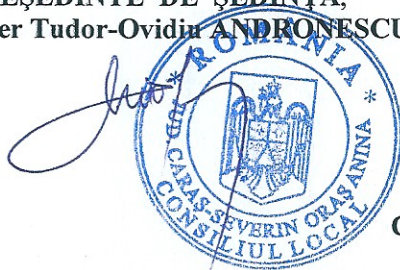 EȘEDINTE DE ȘEDINȚĂ,
er Tudor-Ovidiu ANDRONESCU
* ROMÂNIA *
JUD. CARAȘ-SEVERIN ORAȘ ANINA
CONSILIUL LOCAL
C